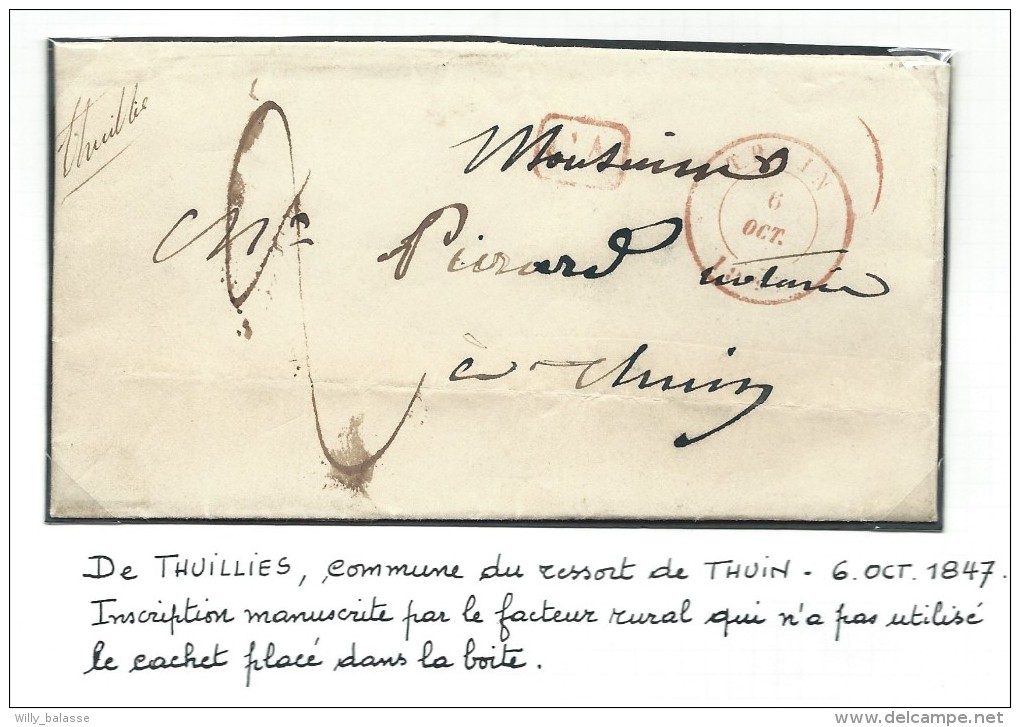 Thuillie
Monsieur
Mr Pierard notaire
à Thuin
6
OCT.
De THUILLIES, commune du ressort de THUIN - 6. OCT. 1847.
Inscription manuscrite par le facteur rural qui n'a pas utilisé
le cachet placé dans la boite.
Willy_balasse
delcampe.net